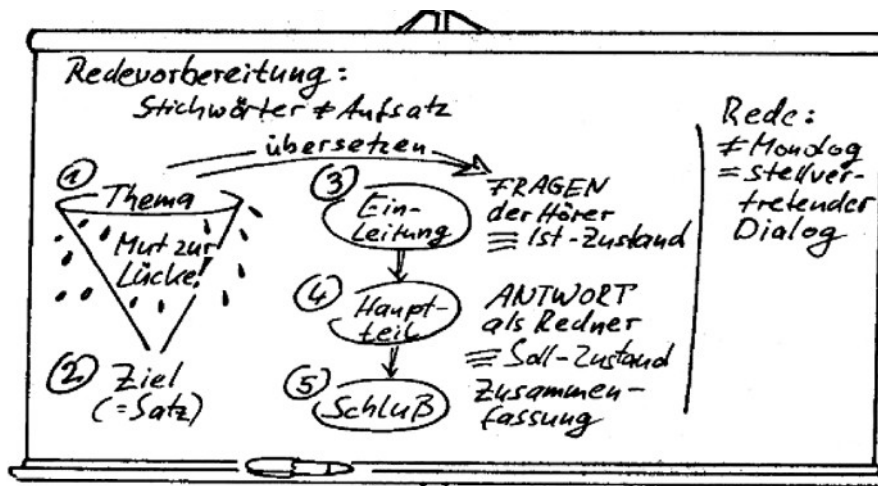 Redevorbereitung:
Stichwörter ≠ Aufsatz
übersetzen
① Thema
Mut zur
Lücke!
② Ziel
(=Satz)
③ Ein-
leitung
FRAGEN
der Hörer
≡ Ist-Zustand
④ Haupt-
teil
ANTWORT
als Redner
≡ Soll-Zustand
⑤ Schluß
Zusammen-
fassung
Rede:
≠ Monolog
= stellver-
tretender
Dialog